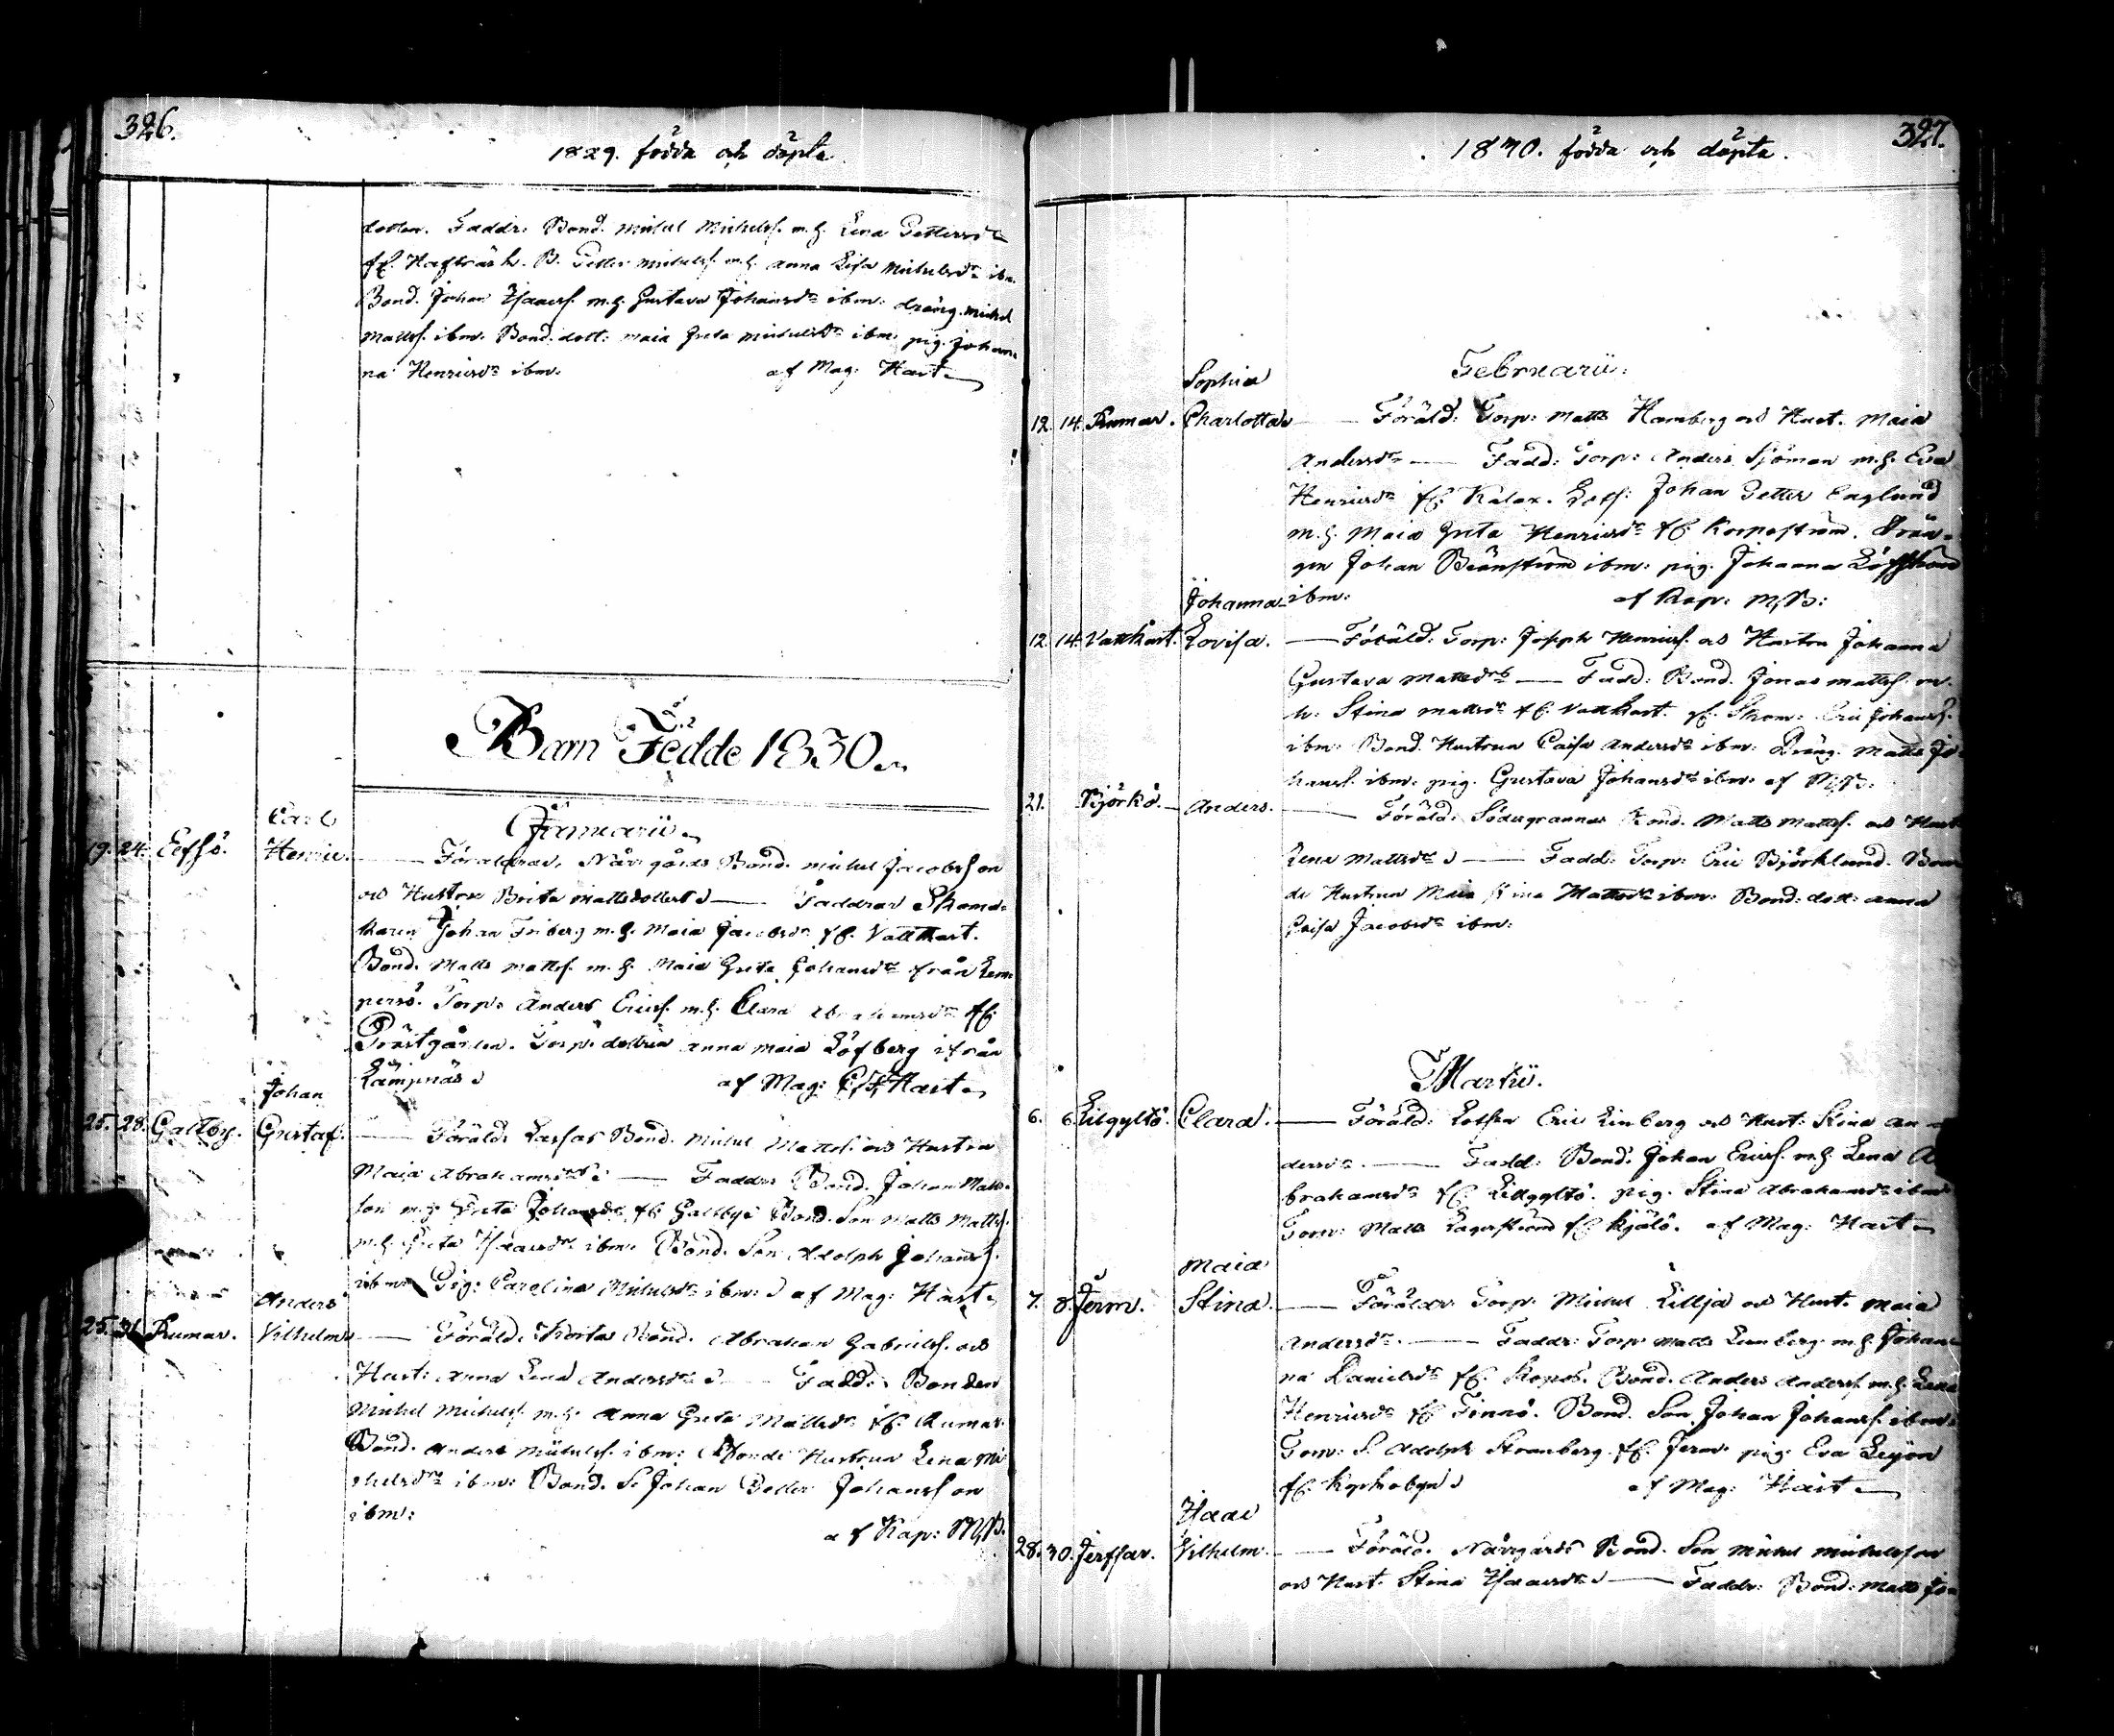 326.
1829. födda och döpta.
dotter. Faddr: Bond. Michel Michelss. m.h. Lena Pettersdr
fr. Hafträsk. B. Petter Michelss. m.h. Anna Lisa Michelsdr ibm.
Bond. Johan Isacss. m.h. Gustava Johansdr ibm: dräng. Michel
Mattss. ibm. Bond. dott: Maia Greta Michelsdr ibm. pig. Johan=
na Henricsdr ibm. af Mag: Hart
Barn Födde 1830.
Januarii.
Carl
19. 24. Henric. Föräldrar, Norrgårds Bond. Michel Jacobsson
och Hustru Brita Mattsdotter Faddrar Skoma=
karen Johan Friberg m.h. Maia Jacobsdr fr. Vattkast.
Bond. Matts Mattss. m.h. Maia Greta Johansdr från Lem=
persö. Torp: Anders Ericss. m.h. Clara Abrahamsdr fr.
Prästgården. Torp: dottren Anna Maia Löfberg ifrån
Lämpnäs af Mag: Hart
Johan
25. 28. Galtby. Gustaf. Föräld: Bond. Michel Mattss. och Hustru
Maia Abrahamsdr Faddr: Bond. Johan Matts=
son m.h. Greta Johansdr fr. Galtby Bond. Son Matts Mattss.
m.h. Greta Isacsdr ibm. Bond. Son Adolph Johanss.
ibm. Pig: Carolina Michelsdr ibm: af Mag: Hart
Anders
25. 31. Rumar. Vilhelm Föräld. Bond. Abraham Gabrielss. och
Hust: Anna Lena Andersdr Fadd: Bonden
Michel Michelss. m.h. Anna Greta Mattsdr fr. Rumar.
Bond. Anders Michelss. ibm: Bonde Hustrun Lena Mi=
chelsdr ibm: Bond. S. Johan Petter Johansson
ibm: af Kap: M,B.
327.
1830. födda och döpta.
Februarii.
Sophia
12. 14. Rumar. Charlotta Föräld: Torp: Matts Hamberg och Hust. Maia
Andersdr Fadd: Torp: Anders Sjöman m.h. Eva
Henricsdr fr. Kalax. Lots: Johan Petter Englund
m.h. Maia Greta Henricsdr fr. Korpoström. Drän=
gen Johan Bränström ibm: pig. Johanna
ibm: af Kap: M,B:
Johanna
12. 14. Vattkast. Lovisa. Föräld: Torp: Joseph Henricss. och Hustru Johanna
Gustava Mattsdr Fadd: Bond. Jonas Mattss. m.
h: Stina Mattsdr fr. Vattkast. Skom: Eric Johanss.
ibm: Bond. Hustrun Caisa Andersdr ibm: Dräng. Matts Jo=
hanss. ibm: pig. Gustava Johansdr ibm: af M,B:
21. Björkö. Anders. Föräld: Södergrannas Bond. Matts Mattss. och Hust
Lena Mattsdr Fadd: Torp: Eric Björklund. Bon=
de Hustrun Maia Stina Mattsdr ibm: Bond: dott: Anna
Caisa Jacobsdr ibm:
Martii.
6. 6. Lilgyltö. Clara. Föräld: Lotsen Eric Linberg och Hust: Stina An=
dersdr. Fadd: Bond. Johan Ericss. m.h. Lena A=
brahamsdr fr. Lillgyltö. pig. Stina Abrahamsdr ibm
Matts Lagerström fr. Kjälö. af Mag: Hart
Maia
7. 8. Jerm. Stina. Föräldr: Torp: Michel Lillja och Hust. Maia
Andersdr. Faddr: Torp Matts m.h. Johan=
na Danielsdr fr. Kopos. Bond. Anders Anderss. m.h. Lena
Henricsdr fr. Finnö. Bond. Son Johan Johanss. ibm:
S. Adolph Stromberg fr. Jerm. pig: Eva Leijon
fr. Kyrkobyn af Mag: Hart
Isaac
28. 30. Jerfsar. Vilhelm. Föräld. Norrgårds Bond. Son Michel Michelsson
och Hust. Stina Isacsdr Faddr: Bond: Matts Jo=